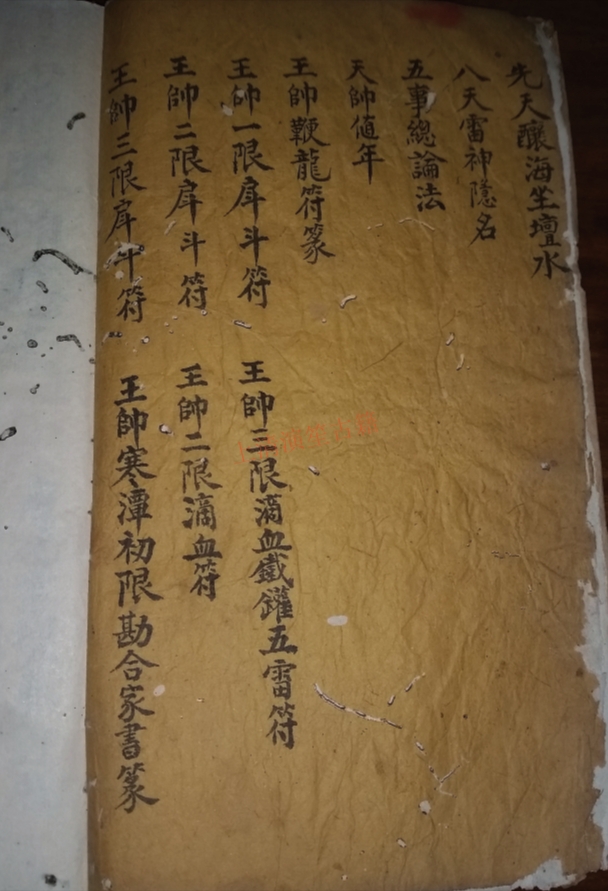 先天釀海坐壇水
八天雷神隱名
五事總論法
天帥值年
王帥鞭龍符篆
王帥一限戽斗符
王帥二限戽斗符
王帥三限戽斗符
王帥三限滴血鐵鑵五雷符
王帥二限滴血符
王帥寒潭初限勘合家書篆